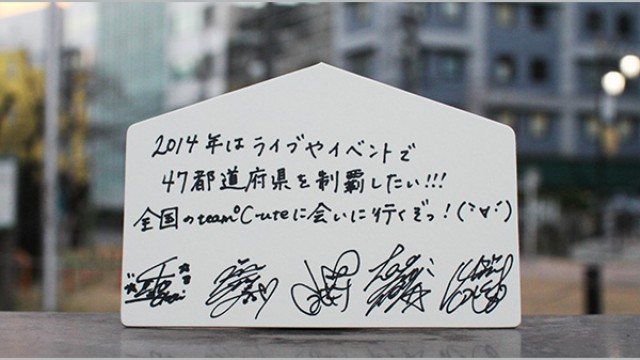 2014年はライブやイベントで
47都道府県を制覇したい!!!
全国のteam℃-uteに会いに行くぞっ!(˘∀˘)